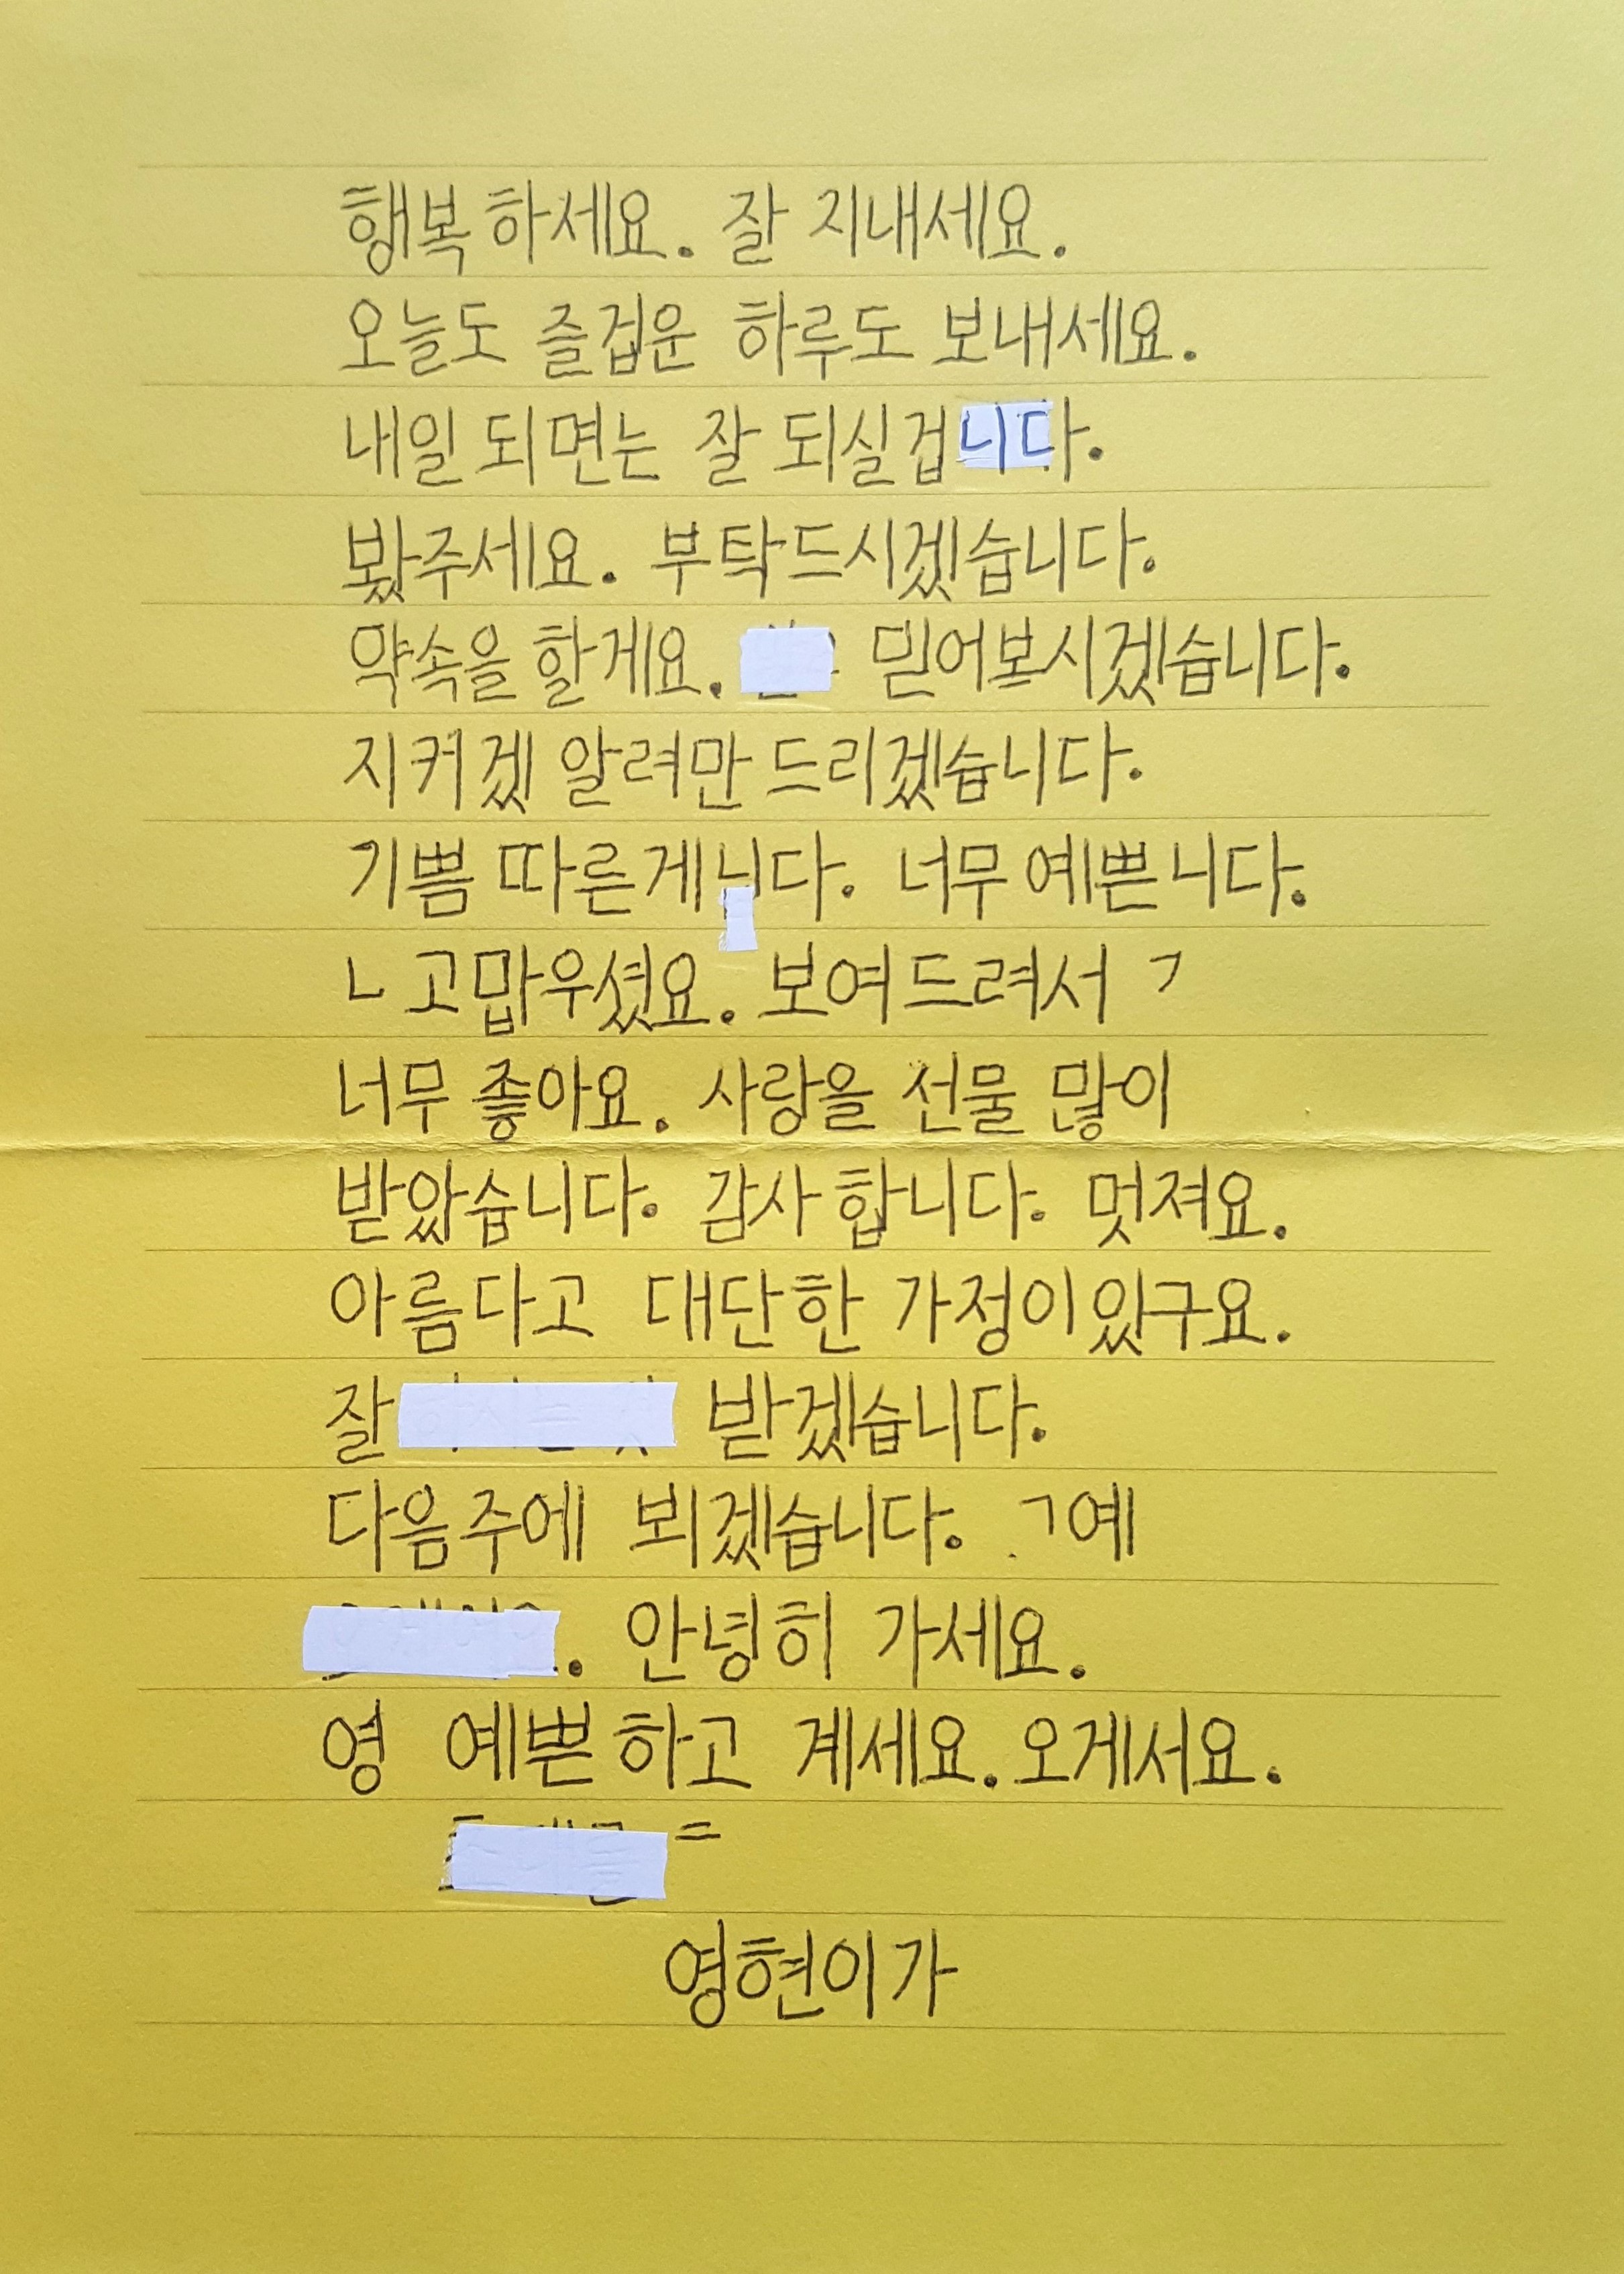 행복하세요. 잘 지내세요.
오늘도 즐겁운 하루도 보내세요.
내일 되면는 잘 되실겁니다.
봤주세요. 부탁드시겠습니다.
약속을 할게요. 믿어보시겠습니다.
지커겠 알려만 드리겠습니다.
기쁨 따른게니다. 너무 예쁜니다.
ㄴ 고맙우셨요. 보여드려서 ㄱ
너무 좋아요. 사랑을 선물 많이
받았습니다. 감사합니다. 멋져요.
아름다고 대단한 가정이있구요.
잘 받겠습니다.
다음주에 뵈겠습니다. ㄱ예
. 안녕히 가세요.
영 예쁜하고 계세요. 오게서요.
영현이가